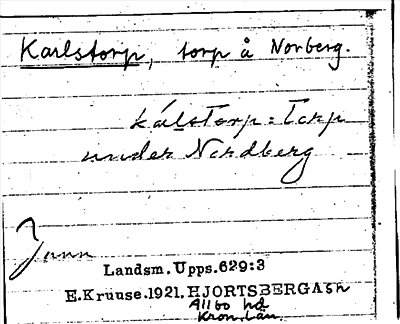 Karlstorp, torp å Norberg.
kálstorp: Torp
under Nordberg
Landsm. Upps. 629:3
E. Kruuse. 1921. HJORTSBERGA sn
Allbo hd
Kron. län.